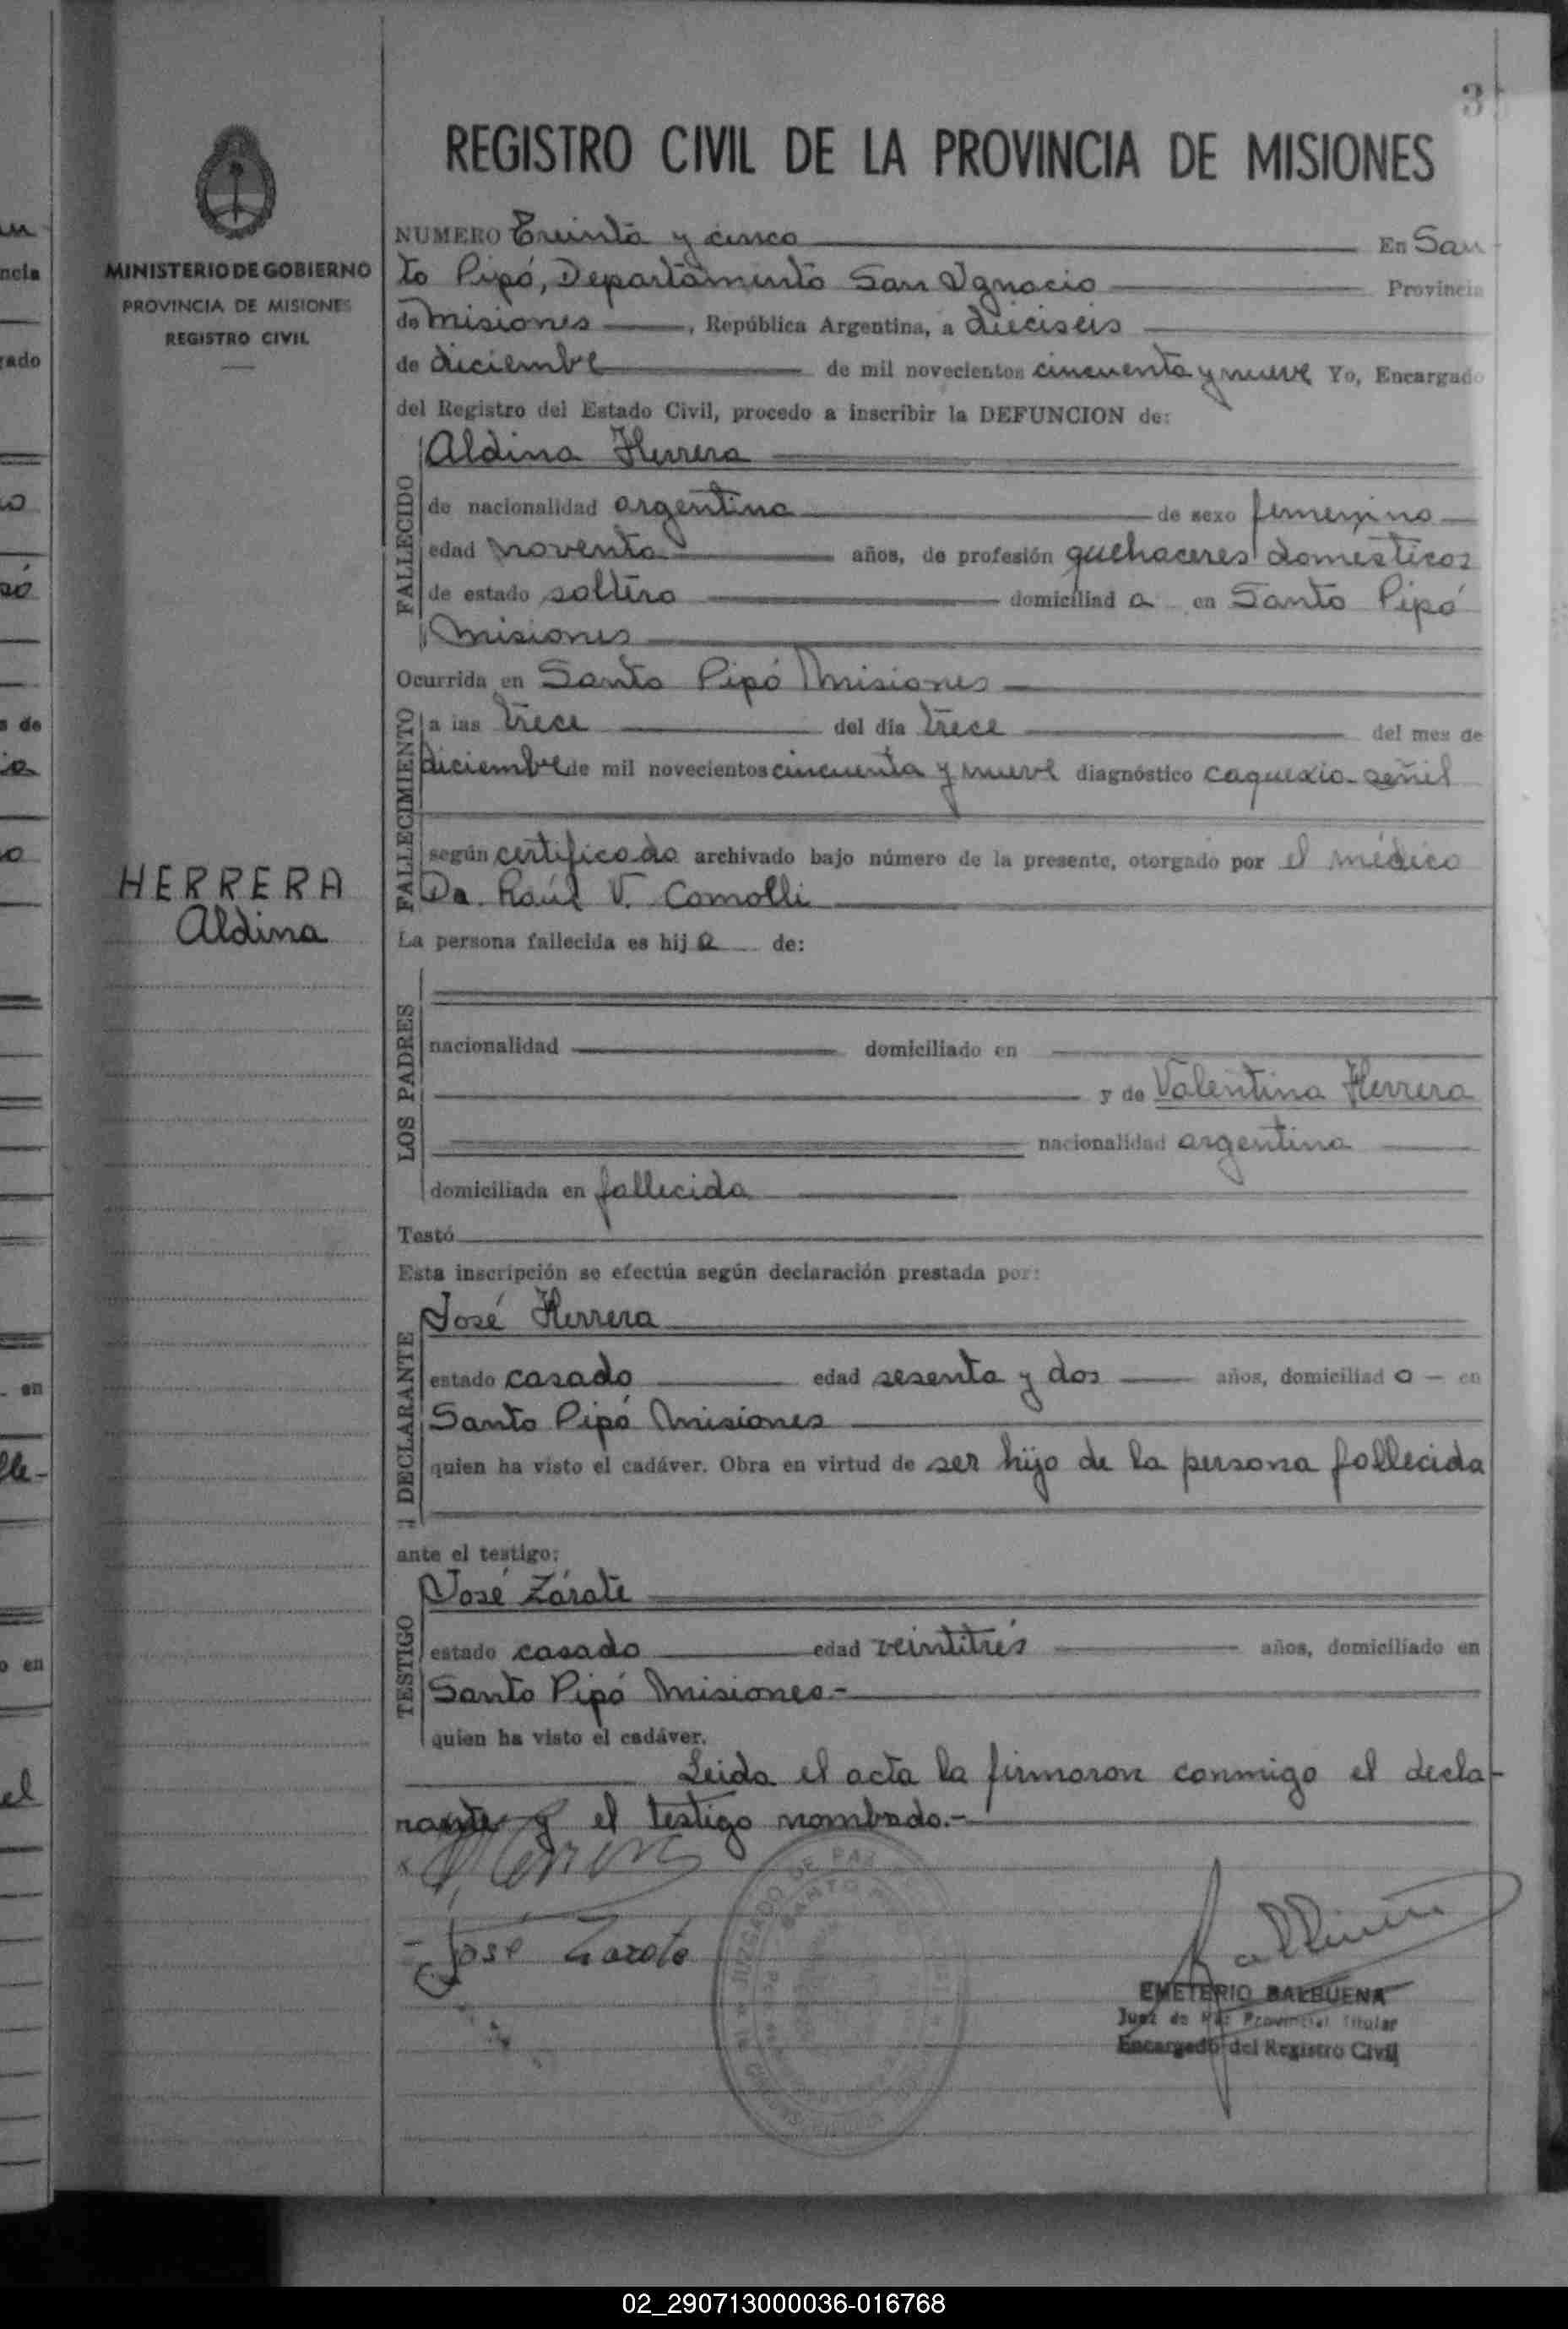 3
REGISTRO CIVIL DE LA PROVINCIA DE MISIONES
MINISTERIO DE GOBIERNO
PROVINCIA DE MISIONES
REGISTRO CIVIL
HERRERA
Aldina
NUMERO Treinta y cinco En San
to Pipó, Departamento San Ignacio Provincia
de Misiones, República Argentina, a dieciseis
de diciembre de mil novecientos cincuenta y nueve Yo, Encargado
del Registro del Estado Civil, procedo a inscribir la DEFUNCION de:
FALLECIDO
Aldina Herrera
de nacionalidad argentina de sexo femenino
edad noventa años, de profesión quehaceres domésticos
de estado soltera domiciliad a en Santo Pipó
Misiones
Ocurrida en Santo Pipó Misiones
FALLECIMIENTO
a las trece del día trece del mes de
diciembre de mil novecientos cincuenta y nueve diagnóstico caquexia señil
según certificado archivado bajo número de la presente, otorgado por el médico
Da. Raúl V. Comolli
La persona fallecida es hij a de:
LOS PADRES
nacionalidad domiciliado en
y de Valentina Herrera
nacionalidad argentina
domiciliada en fallecida
Testó
Esta inscripción se efectúa según declaración prestada por:
DECLARANTE
José Herrera
estado casado edad sesenta y dos años, domiciliad o en
Santo Pipó Misiones
quien ha visto el cadáver. Obra en virtud de ser hijo de la persona fallecida
ante el testigo:
TESTIGO
José Zárate
estado casado edad veintitrés años, domiciliado en
Santo Pipó Misiones.-
quien ha visto el cadáver.
Leida el acta la firmaron conmigo el decla-
rante y el testigo nombrado.-
José Zarate
JUZGADO DE PAZ
SANTO
EMETERIO BALBUENA
Juez de Paz Provincial Titular
Encargado del Registro Civil
02_290713000036-016768